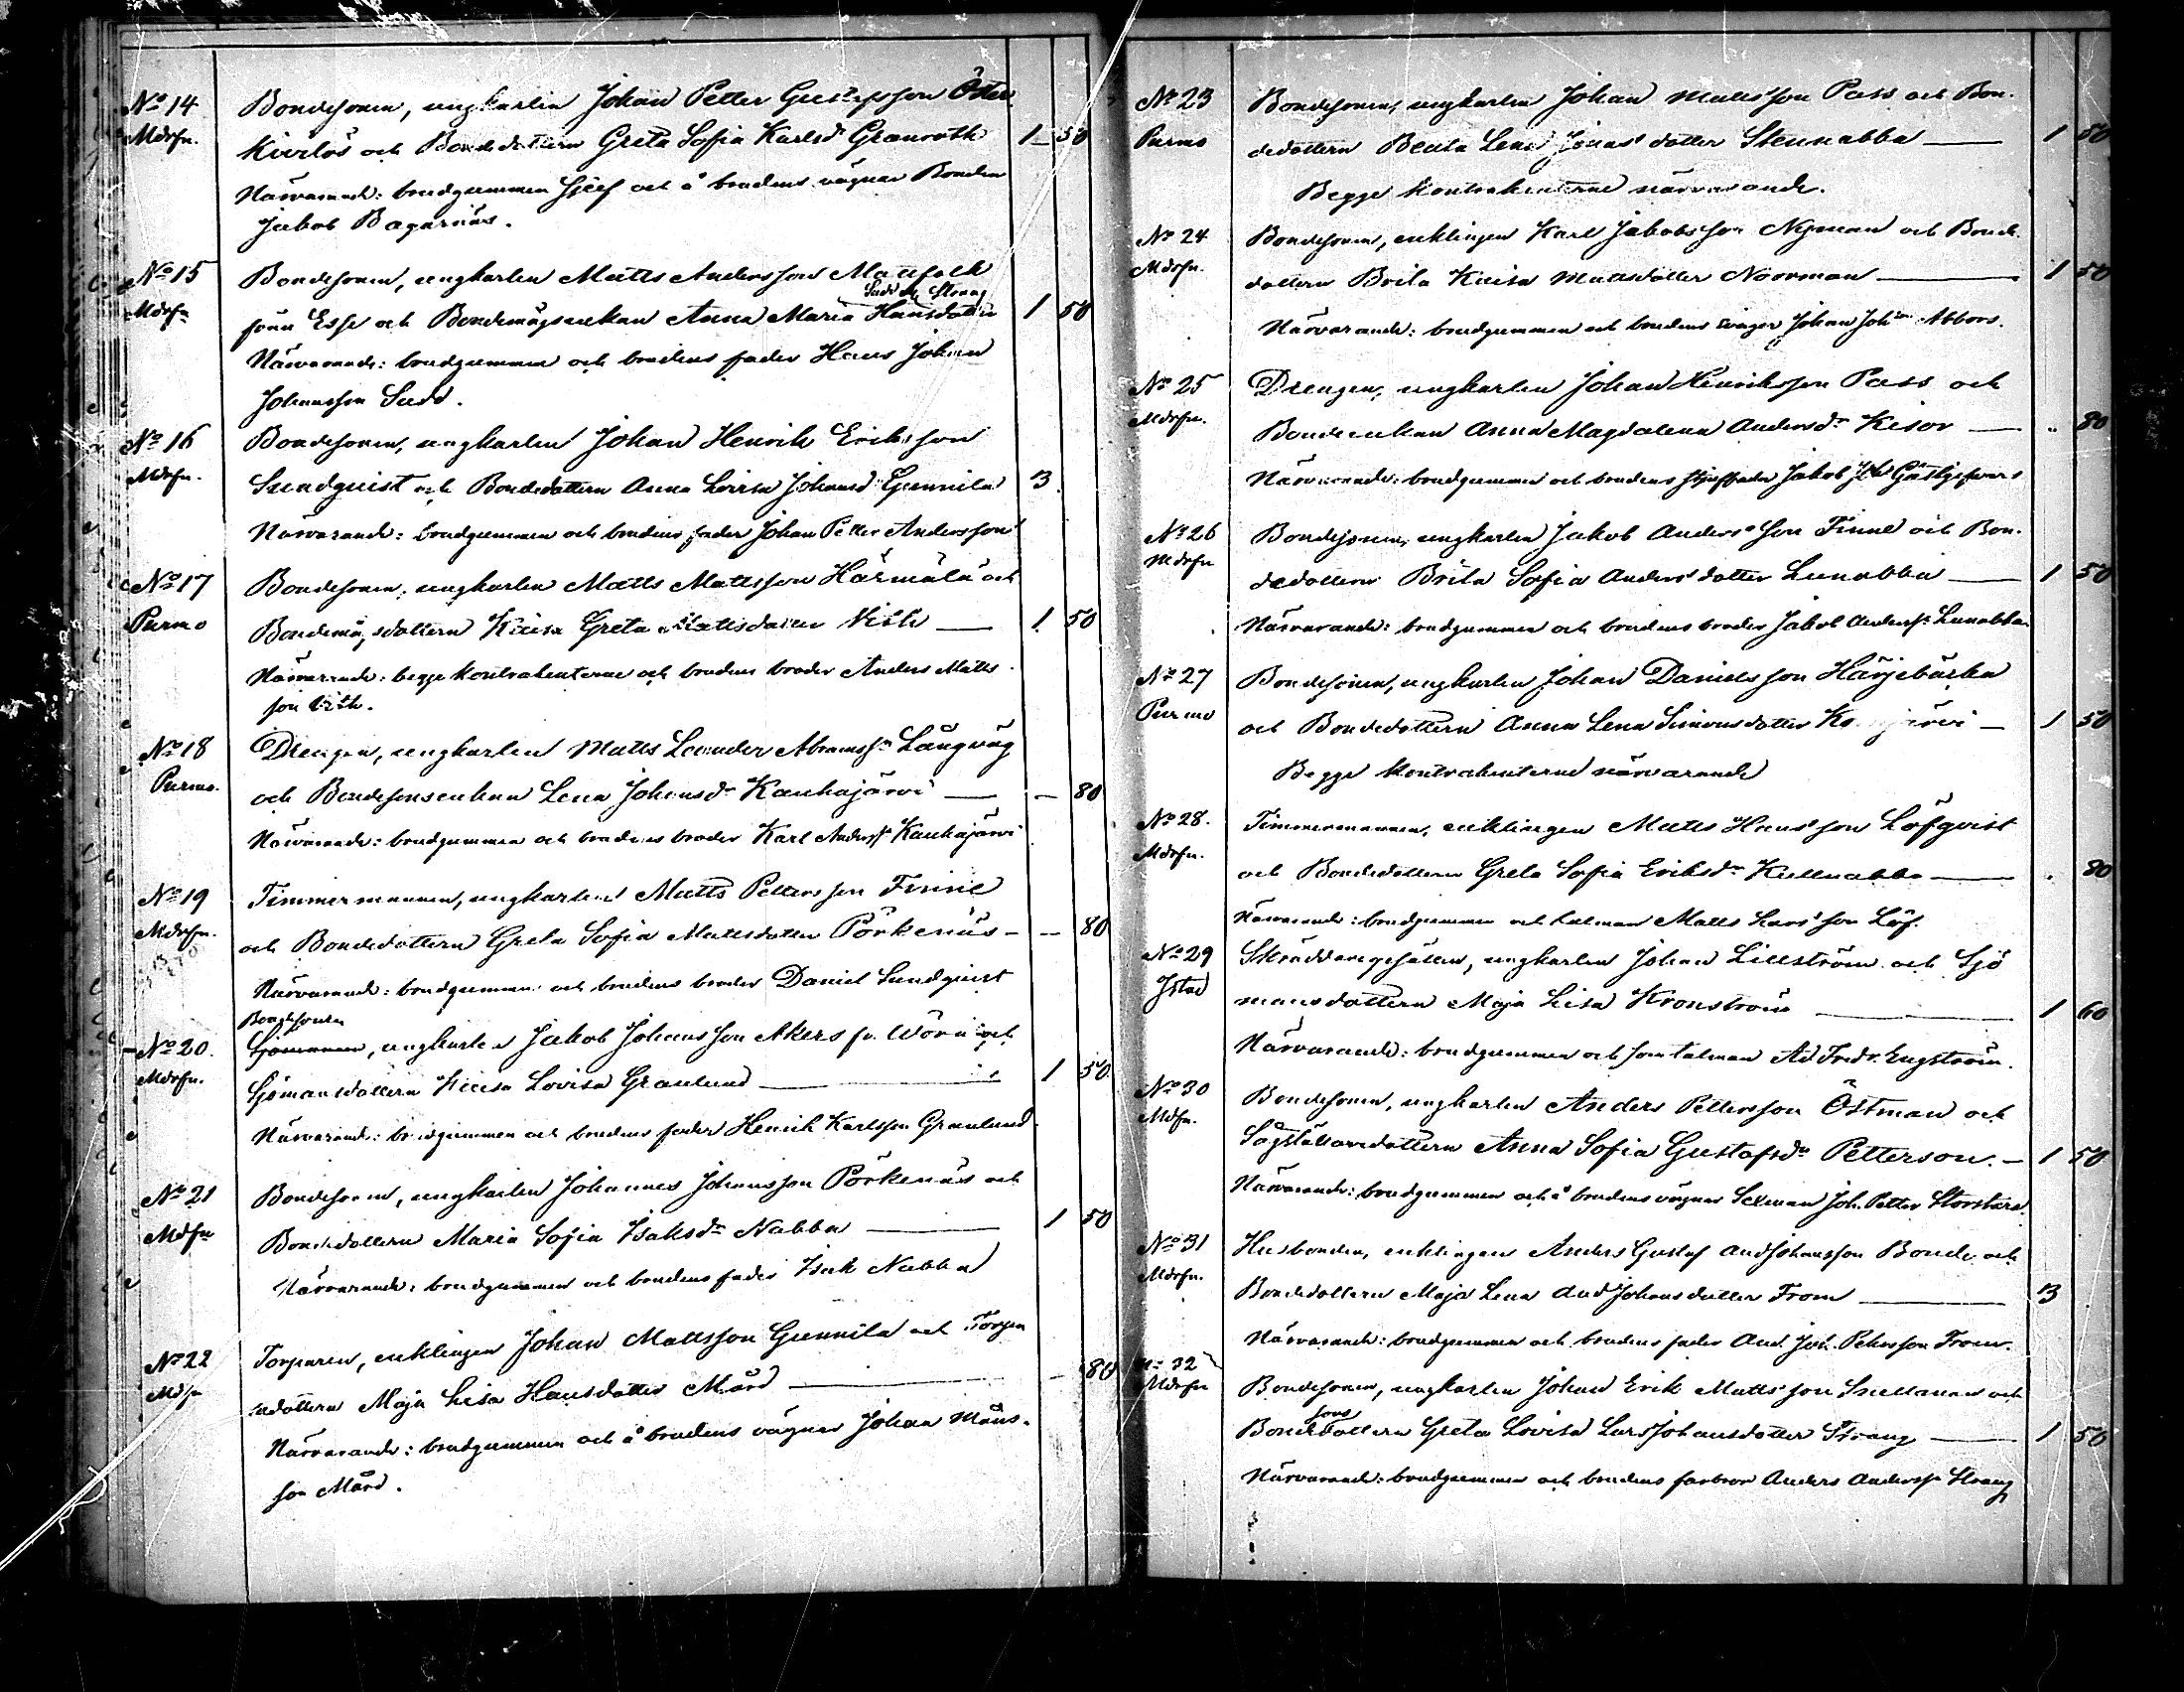 No 14 Bondesonen, ungkarlen Johan Petter Gustafsson Öster
Mdrfn. kivilös och Bondedottern Greta Sofia Karlsdr Granroth 1 50
Närvarande: brudgummen sjelf och å brudens vägnar Bonden
Jakob Bagarnäs.
No 15 Bondesonen, ungkarlen Matts Andersson Mattfolk
Sadd Strang
Mdrfn från Esse och Bondemågsenkan Anna Maria Hansdotter 1 50
Närvarande: brudgummen och brudens fader Hans Johan
Johansson Sadd.
No 16 Bondesonen, ungkarlen Johan Henrik Eriksson
Mdrfn. Sundquist och Bondedottern Anna Lovisa Johansd Gunnila 3
Närvarande: brudgummen och brudens fader Johan Petter Andersson
No 17 Bondesonen, ungkarlen Matts Mattsson Härmälä och
Purmo Bondemågsdottern Kaisa Greta Mattsdotter Vith — 1 50
Närvarande: begge kontrahenterne och brudens broder Anders Matts
son Vith.
No 18 Drengen, ungkarlen Matts Leander Abramssn Långväg
Purmo. och Bondesonsenkan Lena Johansdr Kauhajärvi — — 80
Närvarande: brudgummen och brudens broder Karl Anderssn Kauhajärvi
No 19 Timmermannen, ungkarlen Matts Pettersson Finne
Mdrfn. och Bondedottern Greta Sofia Mattsdotter Pörkenäs — — 80
Närvarande: brudgummen och brudens broder Daniel Sundqvist
Bondesonen
No 20. Sjömannen, ungkarlen Jakob Johansson Akers fr. Wörå och
Mdrfn. Sjömansdottern Kaisa Lovisa Granlund — 1 50.
Närvarande: brudgummen och brudens fader Henrik Karlsson Granlund
No 21 Bondesonen, ungkarlen Johannes Johansson Pörkenäs och
Mdfn Bondedottern Maria Sofia Isaksdr Nabba — 1 50
Närvarande: brudgummen och brudens fader Isak Nabba
No 22 Torparen, enklingen Johan Mattsson Gunnila och Torpa
Mdfn redottern Maja Lisa Hansdotter Mård — — 80
Närvarande: brudgummen och å brudens vägnar Johan Måns-
son Mård.
No 23 Bondesonen, ungkarlen Johan Mattsson Pass och Bon-
Purmo dedottern Beata Lena Jonasdotter Stennabba — 1 50
Begge kontrahenterne närvarande.
No 24 Bondesonen, enklingen Karl Jakobsson Nyman och Bonde-
Mdrfn. dottern Brita Kaisa Mattsdotter Noorman — 1 50
Närvarande: brudgummen och brudens svåger Johan Johsn Abbors.
No 25 Drengen, ungkarlen Johan Henriksson Pass och
Mdrfn. Bondeenkan Anna Magdalena Andersdr Kisor — .. 80
Närvarande: brudgummen och brudens styffader Jakob Gästgifvars
No 26 Bondesonen, ungkarlen Jakob Andersson Finne och Bon-
Mdrfn dedottern Brita Sofia Andersdotter Lunabba — 1 50
Närvarande: brudgummen och brudens broder Jakob Anderssn Lunabba.
No 27 Bondesonen, ungkarlen Johan Danielsson Härjebäcka
Purmo och Bondedottern Anna Lena Simonsdotter järvi — 1 50
Begge kontrahenterne närvarande
No 28. Timmermannen, enklingen Matts Hansson Löfqvist
Mdrfn. och Bondedottern Greta Sofia Eriksdr Kullnabba — . 80
Närvarande: brudgummen och talman Matts Larsson Löf.
No 29 Skräddaregesällen, ungkarlen Johan Lillström och Sjö
Jstad mansdottern Maja Lisa Kronström — 1 60
Närvarande: brudgummen och som talman Ad. Fredr. Engström.
No 30 Bondesonen, ungkarlen Anders Pettersson Östman och
Mdfn. Sågställaredottern Anna Sofia Gustafsdr Petterson. — 1 50
Närvarande: brudgummen och å brudens vägnar Sexman Joh. Petter Storstars.
No 31 Husbonden, enklingen Anders Gustaf Andjohansson Bonde och
Mdrfn. Bondedottern Maja Lena And Johansdotter From — 3
Närvarande: brudgummen och brudens fader And. Joh. Petersson From.
No 32 Bondesonen, ungkarlen Johan Erik Mattsson Snellman och
sons
Mdrfn Bondedottern Greta Lovisa Lars Johansdotter Strang — 1 50
Närvarande: brudgummen och brudens farbror Anders Anderssn Strang